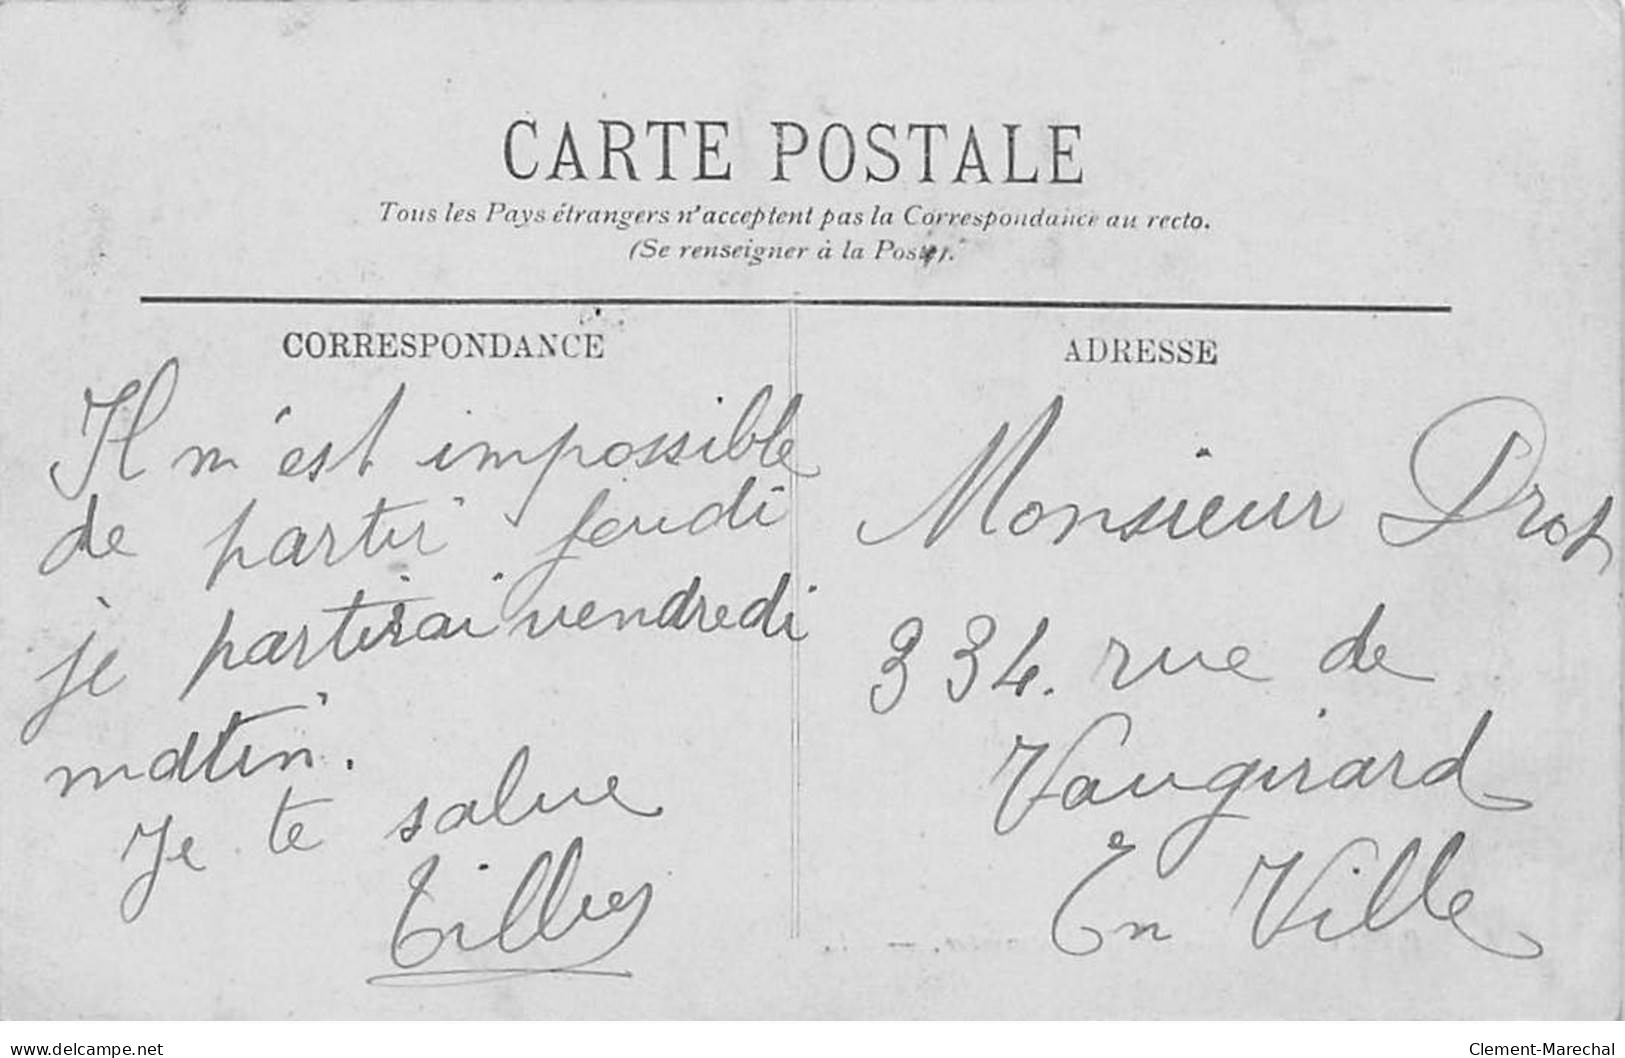 CARTE POSTALE
Tous les Pays étrangers n'acceptent pas la Correspondance au recto.
(Se renseigner à la Poste).
CORRESPONDANCE
Il m'est impossible
de partir jeudi
je partirai vendredi
matin.
Je te salue
ADRESSE
Monsieur Prot
334. rue de
Vaugirard
En Ville
www.delcampe.net
Clement-Marechal